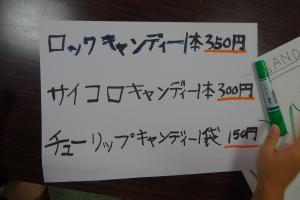 ロックキャンディー1本350円
サイコロキャンディー1本300円
チューリップキャンディー1袋150円